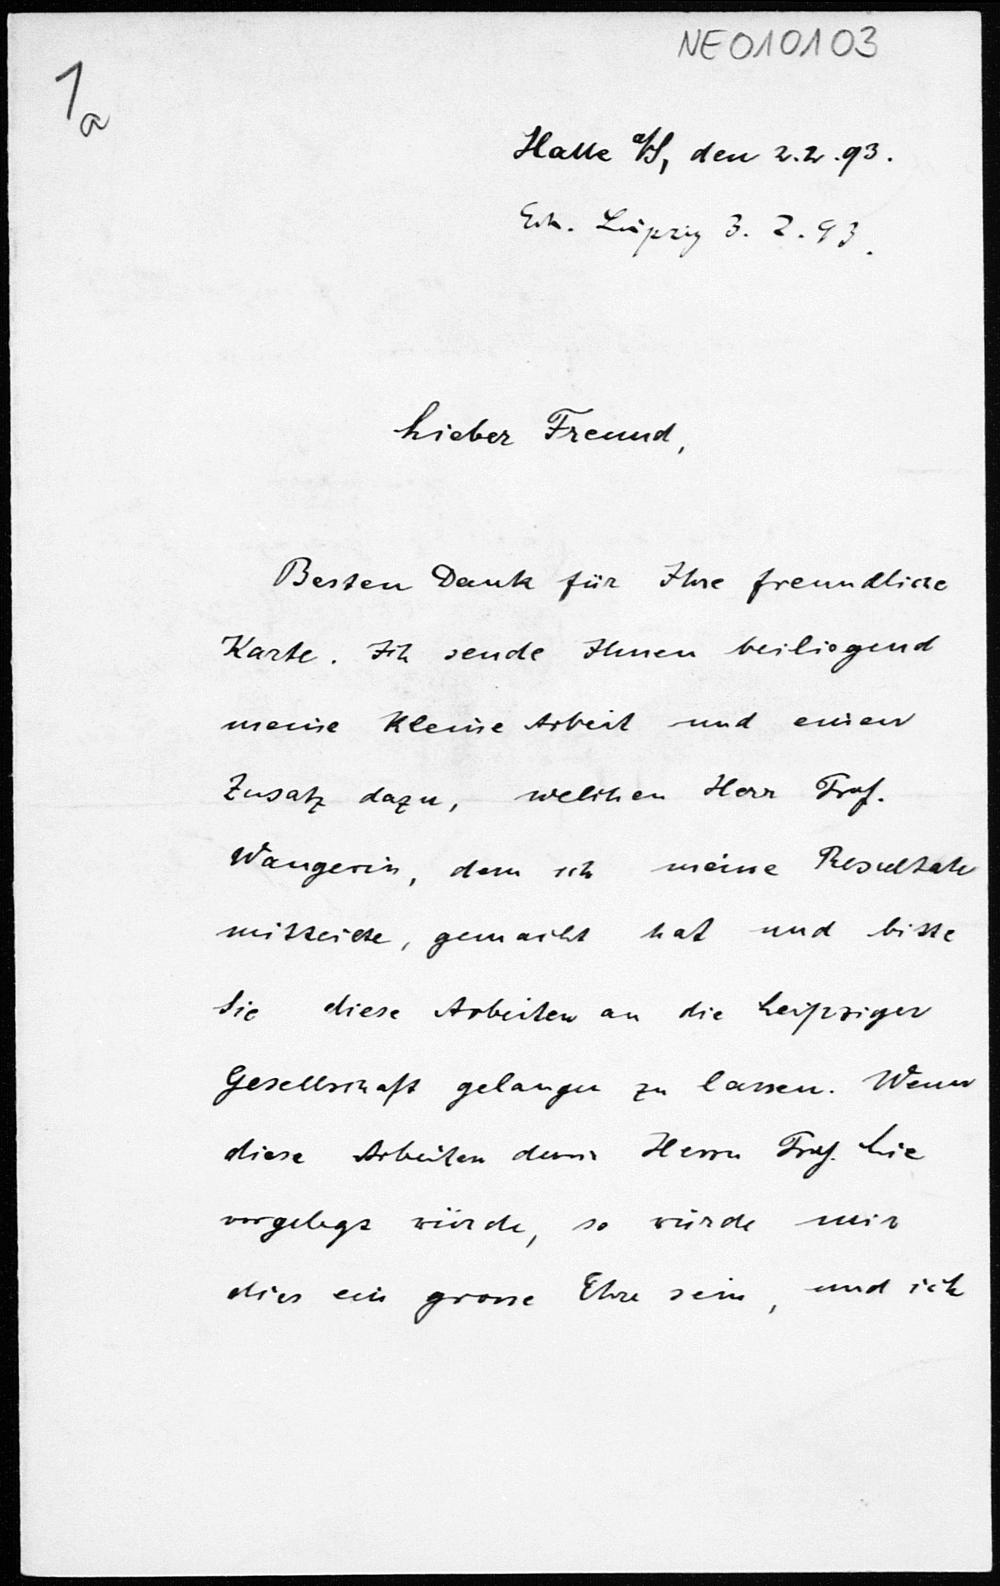 NE010103
1a
Halle a/S, den 2.2.93.
Erh. Leipzig 3.2.93.
Lieber Freund,
Besten Dank für Ihre freundliche
Karte. Ich sende Ihnen beiliegend
meine kleine Arbeit und einen
Zusatz dazu, welchen Herr Prof.
Wangerin, dem ich meine Resultate
mitteilte, gemacht hat und bitte
Sie diese Arbeiten an die Leipziger
Gesellschaft gelangen zu lassen. Wenn
diese Arbeiten dann Herrn Prof. Lie
vorgelegt würde, so würde mir
dies ein grosse Ehre sein, und ich